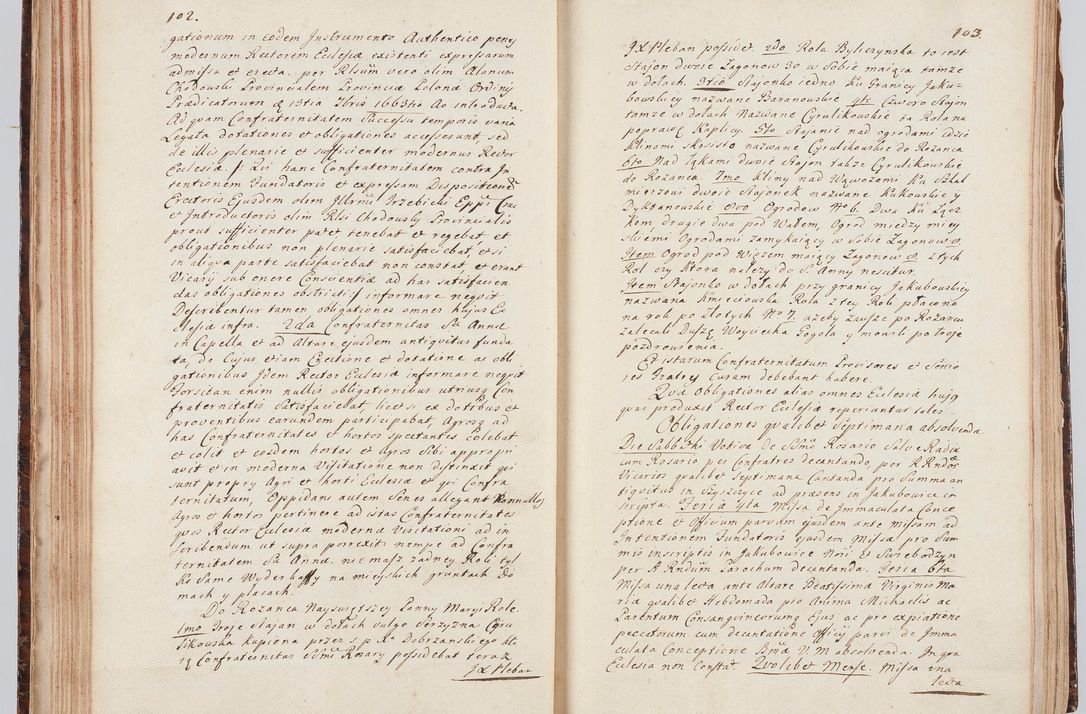 102.
gationum in eodem Instrumento Authentico penes
modernum Rectorem Ecclesiæ existenti expressarum
admissa et erecta. per Rlsum vero olim Alanum
Chodowski Provincialem Provinciæ Polonæ Ordinis
Prædicatorum d 13tia Xbris 1663tio Ao introducta.
Ad quam Confraternitatem successu temporis varia
Legata dotationes et obligationes accesserunt, sed
de illis plenarie et sufficienter modernus Rector
Ecclesiæ /: Qui hanc Confraternitatem contra In
tentionem Fundatoris et expressam Dispositionem
Erectoris Ejusdem olim Illrmi Trzebicki Eppi Crac
et Introductoris olim Rlsi Chodowski Provincialis
prout sufficienter patet tenebat et regebat, et
obligationibus non plenarie satisfaciebat, et si
in aliqua parte satisfaciebat non constat, et erant
Vicarij sub onere Conscientiæ ad has satisfacien
das obligationes obstricti :/ informare nequit
Describentur tamen obligationes omnes hujus Ec
lesiæ infra. 2da Confraternitas Sæ Annæ
in Capella et ad Altare ejusdem antiquitus funda
ta, de Cujus etiam Erectione et dotatione ac obli
gationibus Idem Rector Ecclesiæ informare nequit
Forsitan enim nullis obligationibus utriusq Con
fraternitatis satisfaciebat, licet si ex dotibus et
proventibus earundem participabat, Agrosq ad
has Confraternitates et hortos spectantes colebat
et colit et eosdem hortos et agros sibi appropri
avit et in moderna Visitatione non distinxit qui
sunt proprij Agri et horti Ecclesiæ et qui Confra
ternitatum, Oppidani autem Senes allegant Nonnullos
Agros et hortos pertinere ad istas Confraternitates
quos Rector Ecclesiæ modernæ Visitationi ad in
scribendum ut supra porrexit. nempe ad Confra
ternitatem Sæ Annæ. niemasz żadney Roli tyl
ko same Wyderkaffy na mieyskich gruntach Do
mach y placach.
Do Rożanca Nayswiętszey Panny Maryi Role
1mo Troje staian w dołach vulgo Serzyzna Cyru
likowska kupiona przez s. p. Xa Dobrzanskiego kto
rą Confraternitas SSmi Rosary possidebat teraz
JX Pleban
103.
JX Pleban possidet. 2do Rola Byliczynska to iest
Stajon dwoie Zagonow 30 w sobie maiąca tamze
w dołach. 3tio Stajonko iedno ku Granicy Jaku-
bowskiey nazwane Baranowskie 4to Czworo Stajon
tamze w dołach Nazwane Cyrulikowskie ta Rola na
poprawę Kaplicy. 5to Stajanie nad ogrodami idzie
klinami skosisto nazwane Cyrulikowskie do Rożanca
6to Nad Łąkami dwoie Stajon także Cyrulikowskie
do Rożanca. 7mo Kliny nad Wąwozami ku Szlak
mierzowi dwoie Stajonek nazwane Kukowskie y
Dyktanowskie 8vo Ogrodow No 6. Dwa ku Łącz
kom drugie dwa pod Wałem, Ogrod miedzy miey
skiemi Ogrodami zamykaiący w sobie Zagonow 8.
Item Ogrod pod Wiązem maiący Zagonow 8. z tych
Rol czy ktora należy do S. Anny nescitur.
Item Stajonko w dołach przy granicy Jakubowskiey
nazwana Kmieciowska Rola z tey Roli płacono
na rok po złotych No 7 ażeby zawsze po Rożancu
zalecali Duszę Woyciecha Gogola y mowili po troje
pozdrowienia.
Et istarum Confraternitatum Provisores et Senio
res Fratres curam debebant habere.
Quæ Obligationes alias omnes Ecclesiæ hujq
quas produxit Rector Ecclesiæ reperiuntur tales
Obligationes qualibet Septimana absolvenda
Die Sabbathi Votiva de SSmo Rosario Salve Radix
cum Rosario per Confratres decantando, per R. Rndos
Vicarios qualibet Septimana Cantanda pro Summa an
tiquitus in Szyszyce ad præsens in Jakubowice in
scripta. Feria 4ta Missa de Immaculata Conce
ptione et Officium parvum ejusdem ante Missam ad
Intentionem Fundatoris Ejusdem Missæ pro Sum
mis inscriptis in Jakubowice Nori et Swiebodzyn
per A. Rndum Parochum decantanda. Feria 6ta
Missa una lecta ante Altare Beatissimæ Virginis Ma
riæ qualibet Hebdomada pro Anima Michaelis ac
Parentum Consanguineorumq Ejus ac pro expiatione
peccatorum cum decantatione Officij parvi de Imma
culata Conceptione Bmæ V. M. absolvenda. In qua
Ecclesia non constat. Quolibet Mense. Missa una
lecta